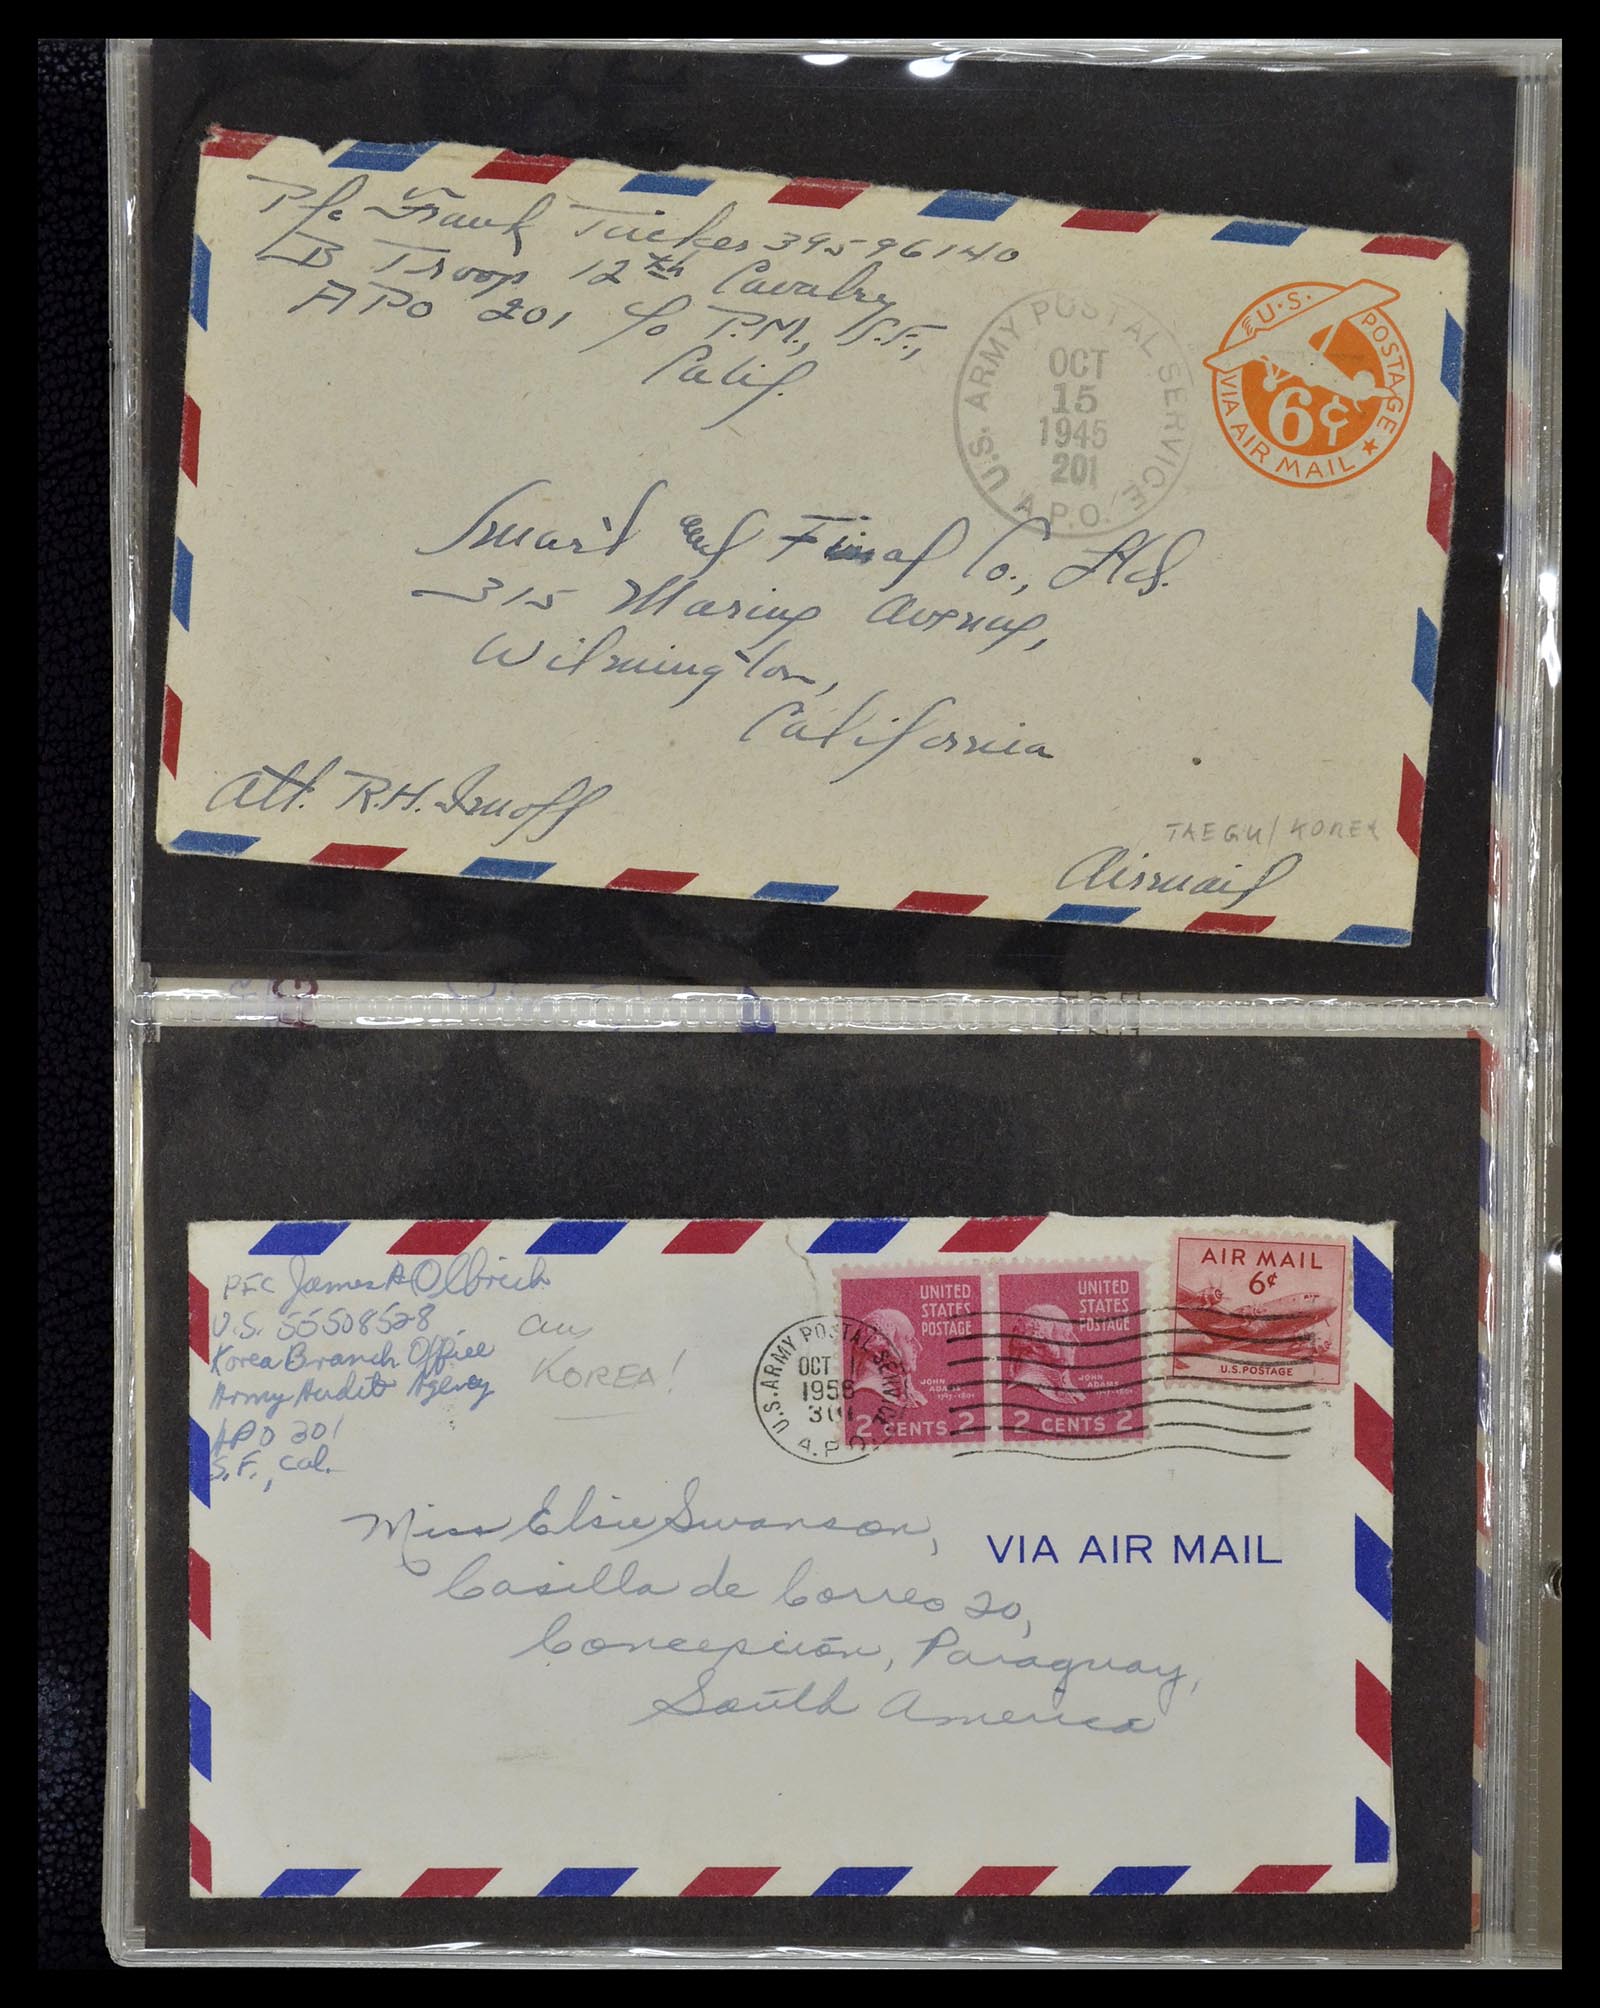 Pfc Frank Tucker 39596140
B Troop 12th Cavalry
APO 201 c/o P.M., S.F.,
Calif.
U.S. ARMY POSTAL SERVICE
OCT
15
1945
201
A.P.O.
U.S. POSTAGE
6¢
VIA AIR MAIL
Smart and Final Co., Ltd.
315 Marine Avenue,
Wilmington,
California
Att. R.H. Imoff
TAEGU/KOREA
Airmail
PFC James A Olbrich
U.S. 55508528
Korea Branch Office
Army Audit Agency
APO 301
S.F., Cal.
aus
KOREA!
U.S. ARMY POSTAL SERVICE
OCT 1
1958
301
A.P.O.
UNITED
STATES
POSTAGE
JOHN
ADAMS
1797-1801
2 CENTS 2
UNITED
STATES
POSTAGE
JOHN
ADAMS
1797-1801
2 CENTS 2
AIR MAIL
6¢
U.S. POSTAGE
Miss Elsie Swanson,
VIA AIR MAIL
Casilla de Correo 20,
Concepción, Paraguay,
South America